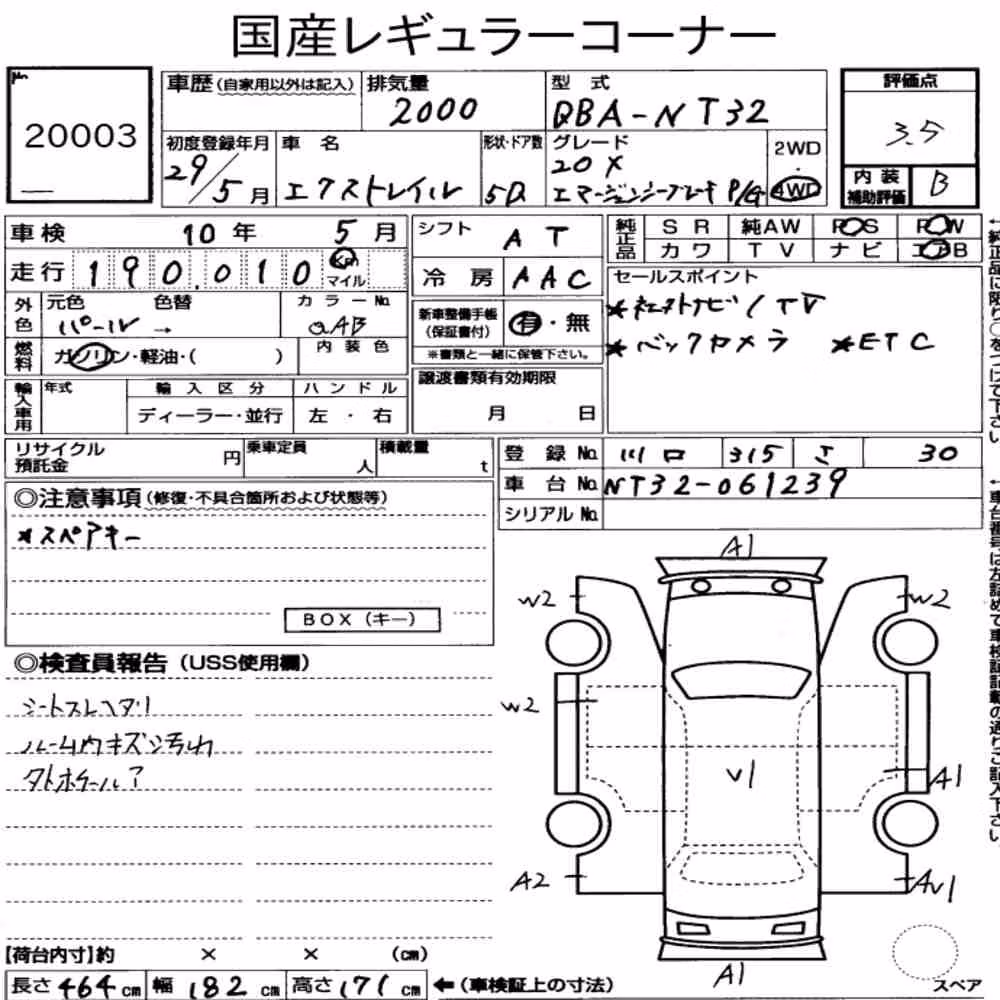 国産レギュラーコーナー
20003
車歴(自家用以外は記入)
排気量
2000
型式
DBA-NT32
評価点
3.5
初度登録年月
29/5月
車名
エクストレイル
形状・ドア数
5D
グレード
20X
エマージンシーブレーキ P/G
2WD
4WD
内装
補助評価
B
車検 10年 5月
走行 190,010 Km
マイル
シフト AT
冷房 AAC
純正品
SR 純AW PS PW
カワ TV ナビ エアB
外色
元色 色替
パール →
カラーNo.
QAB
燃料
ガソリン・軽油・( )
内装色
新車整備手帳
(保証書付)
有・無
※書類と一緒に保管下さい。
セールスポイント
*社外ナビ/TV
*バックカメラ *ETC
輸入車用
年式
輸入区分
ディーラー・並行
ハンドル
左・右
譲渡書類有効期限
月 日
リサイクル
預託金
円
乗車定員
人
積載量
t
登録No. 川口 315 さ 30
車台No. NT32-061239
シリアルNo.
◎注意事項(修復・不具合箇所および状態等)
*スペアキー
BOX(キー)
◎検査員報告(USS使用欄)
シートスレヘタリ
ルーム内キズシ汚れ
タトホイールア
A1
W2
W2
W2
V1
A1
A2
AV1
A1
スペア
【荷台内寸】約 × × (cm)
長さ464cm 幅182cm 高さ171cm ←(車検証上の寸法)